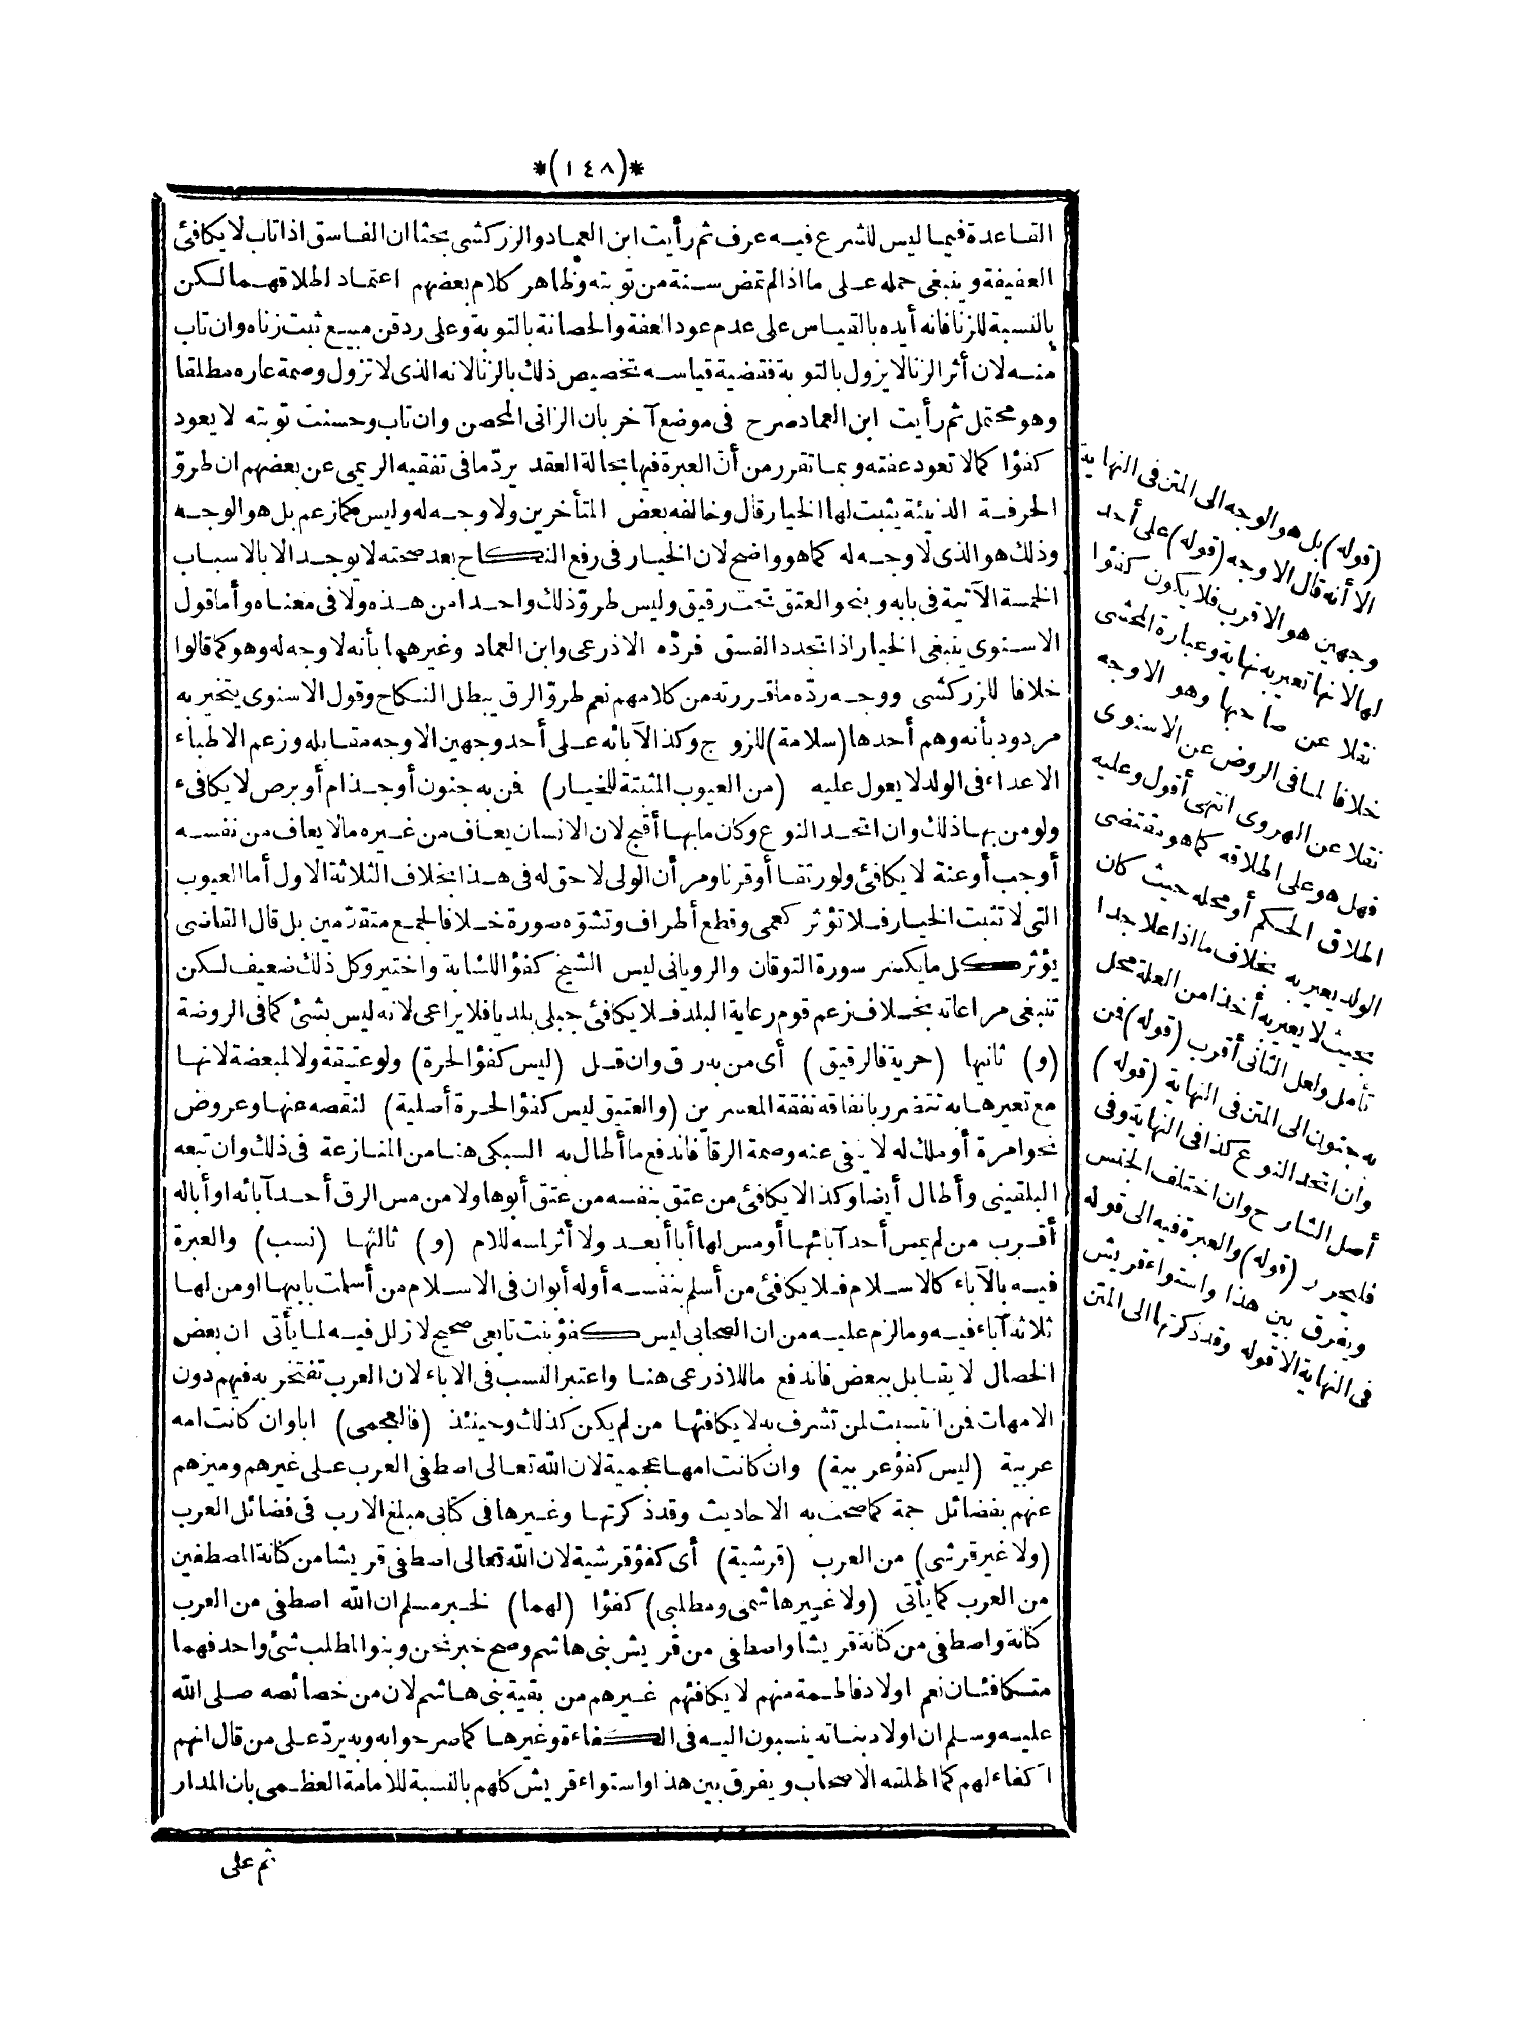 *(١٤٨)*
القاعدة فيما ليس للشرع فيه عرف ثم رأيت ابن العماد والزركشى بحثا ان الفاسق اذا تاب لا يكافئ
العفيفة وينبغى حمله على ما اذا لم تمض سنة من توبته وظاهر كلام بعضهم اعتماد اطلاقهما لكن
بالنسبة للزنا فانه أيده بالقياس على عدم عود العفة والحصانة بالتوبة وعلى رد قن مبيع ثبت زناه وان تاب
منه لان أثر الزنا لا يزول بالتوبة فقضية قياسه تخصيص ذلك بالزنا لانه الذى لا تزول وصمة عاره مطلقا
وهو محتمل ثم رأيت ابن العماد صرح فى موضع آخر بان الزانى المحصن وان تاب وحسنت توبته لا يعود
كفؤا كما لا تعود عفته وبما تقرر من أن العبرة فيها بحالة العقد يردّ ما فى تفقيه الريمى عن بعضهم ان طروّ
الحرفة الدنيئة يثبت لها الخيار قال وخالفه بعض المتأخرين ولا وجه له وليس كما زعم بل هو الوجه
وذلك هو الذى لا وجه له كما هو واضح لان الخيار فى رفع النكاح بعد صحته لا يوجد الا بالاسباب
الخمسة الآتية فى بابه وبنحو العتق تحت رقيق وليس طروّ ذلك واحدا من هذه ولا فى معناه وأما قول
الاسنوى ينبغى الخيار اذا تجدد الفسق فردّه الاذرعى وابن العماد وغيرهما بأنه لا وجه له وهو كما قالوا
خلافا للزركشى ووجه ردّه ما قررته من كلامهم نعم طروّ الرق يبطل النكاح وقول الاسنوى يتخير به
مردود بأنه وهم أحدها (سلامة) للزوج وكذا لآبائه على أحد وجهين الاوجه مقابله وزعم الاطباء
الاعداء فى الولد لا يعول عليه (من العيوب المثبتة للخيار) فمن به جنون أو جذام أو برص لا يكافىء
ولو من بها ذلك وان اتحد النوع وكان ما بها أقبح لان الانسان يعاف من غيره ما لا يعاف من نفسه
أو جب أو عنة لا يكافئ ولو رتقا أو قرنا ومر أن الولى لا حق له فى هذا بخلاف الثلاثة الاول أما العيوب
التى لا تثبت الخيار فلا تؤثر كعمى وقطع أطراف وتشوّه صورة خلافا لجمع متقدّمين بل قال القاضى
يؤثر كل ما يكسر سورة التوقان والرويانى ليس الشيخ كفؤا للشابة واختير وكل ذلك ضعيف لكن
تنبغى مراعاته بخلاف زعم قوم رعاية البلد فلا يكافئ جبلى بلديا فلا يراعى لانه ليس بشئ كما فى الروضة
(و) ثانيها (حرية فالرقيق) أى من به رق وان قل (ليس كفؤا لحرة) ولو عتيقة ولا لمبعضة لانها
مع تعيرها به تتضرر بانفاقه نفقة المعسرين (والعتيق ليس كفؤا لحرة أصلية) لنقصه عنها وعروض
نحو امرة أو ملك له لا ينفى عنه وصمة الرق فاندفع ما أطال به السبكى هنا من المنازعة فى ذلك وان تبعه
البلقينى وأطال أيضا وكذا لا يكافئ من عتق بنفسه من عتق أبوها ولا من مس الرق أحد آبائه او أبا له
أقرب من لم يمس أحد آبائها أو مس لها أبا أبعد ولا أثر لمسه للام (و) ثالثها (نسب) والعبرة
فيه بالآباء كالاسلام فلا يكافئ من أسلم بنفسه أو له أبوان فى الاسلام من أسلمت بابيها او من لها
ثلاثة آباء فيه وما لزم عليه من ان الصحابى ليس كفؤ بنت تابعى صحيح لا زلل فيه لما يأتى ان بعض
الخصال لا يقابل ببعض فاندفع ما للاذرعى هنا واعتبر النسب فى الاباء لان العرب تفتخر به فيهم دون
الامهات فمن انتسبت لمن تشرف به لا يكافئها من لم يكن كذلك وحينئذ (فالعجمى) ابا وان كانت امه
عربية (ليس كفؤ عربية) وان كانت امها عجمية لان الله تعالى اصطفى العرب على غيرهم وميزهم
عنهم بفضائل جمة كما صحت به الاحاديث وقد ذكرتها وغيرها فى كتابى مبلغ الارب فى فضائل العرب
(ولا غير قرشى) من العرب (قرشية) أى كفؤ قرشية لان الله تعالى اصطفى قريشا من كنانة المصطفين
من العرب كما يأتى (ولا غير هاشمى ومطلبى) كفؤا (لهما) لخبر مسلم ان الله اصطفى من العرب
كنانة واصطفى من كنانة قريشا واصطفى من قريش بنى هاشم وصح خبر نحن وبنو المطلب شئ واحد فهما
متكافئان نعم اولاد فاطمة منهم لا يكافئهم غيرهم من بقية بنى هاشم لان من خصائصه صلى الله
عليه وسلم ان اولاد بناته ينسبون اليه فى الكفاءة وغيرها كما صرحوا به وبه يردّ على من قال انهم
اكفاء لهم كما اطلقه الاصحاب ويفرق بين هذا واستواء قريش كلهم بالنسبة للامامة العظمى بان المدار
ثم على
(قوله) بل هو الوجه الى المتن فى النهاية
الا أنه قال الاوجه (قوله) على أحد
وجهين هو الاقرب فلا يكون كفؤا
لها لانها تعير به نهاية وعبارة المحشى
نقلا عن صاحبها وهو الاوجه
خلافا لما فى الروض عن الاسنوى
نقلا عن الهروى انتهى أقول وعليه
فهل هو على اطلاقه كما هو مقتضى
اطلاق الحكم أو محله حيث كان
الولد يعير به بخلاف ما اذا علا جدا
بحيث لا يعير به أخذا من العلة محل
تأمل ولعل الثانى أقرب (قوله) فمن
به جنون الى المتن فى النهاية (قوله)
وان اتحد النوع كذا فى النهاية وفى
أصل الشارح وان اختلف الجنس
فليحرر (قوله) والعبرة فيه الى قوله
ويفرق بين هذا واستواء قريش
فى النهاية الا قوله وقد ذكرتها الى المتن